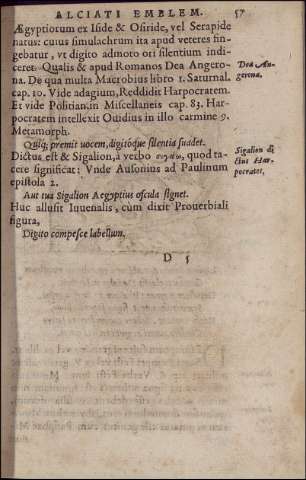 ALCIATI EMBLEM. 57
Ægyptiorum ex Iside & Osiride, vel Serapide
natus: cuius simulachrum ita apud veteres fin-
gebatur, vt digito admoto ori silentium indi-
ceret. Qualis & apud Romanos Dea Angero-
na. De qua multa Macrobius libro 1. Saturnal.
cap. 10. Vide adagium, Reddidit Harpocratem.
Et vide Politian. in Miscellaneis cap. 83. Har-
pocratem intellexit Ouidius in illo carmine 9.
Metamorph.
Quiq; premit vocem, digitóque silentia suadet.
Dictus est & Sigalion, a verbo σιγάω, quod ta-
cere significat; Vnde Ausonius ad Paulinum
epistola 2.
Aut tua Sigalion Aegyptius oscula signet.
Huc allusit Iuuenalis, cum dixit Prouerbiali
figura,
Digito compesce labellum.
D 5
Dea An-
gerona.
Sigalion di
ctus Har-
pocrates.